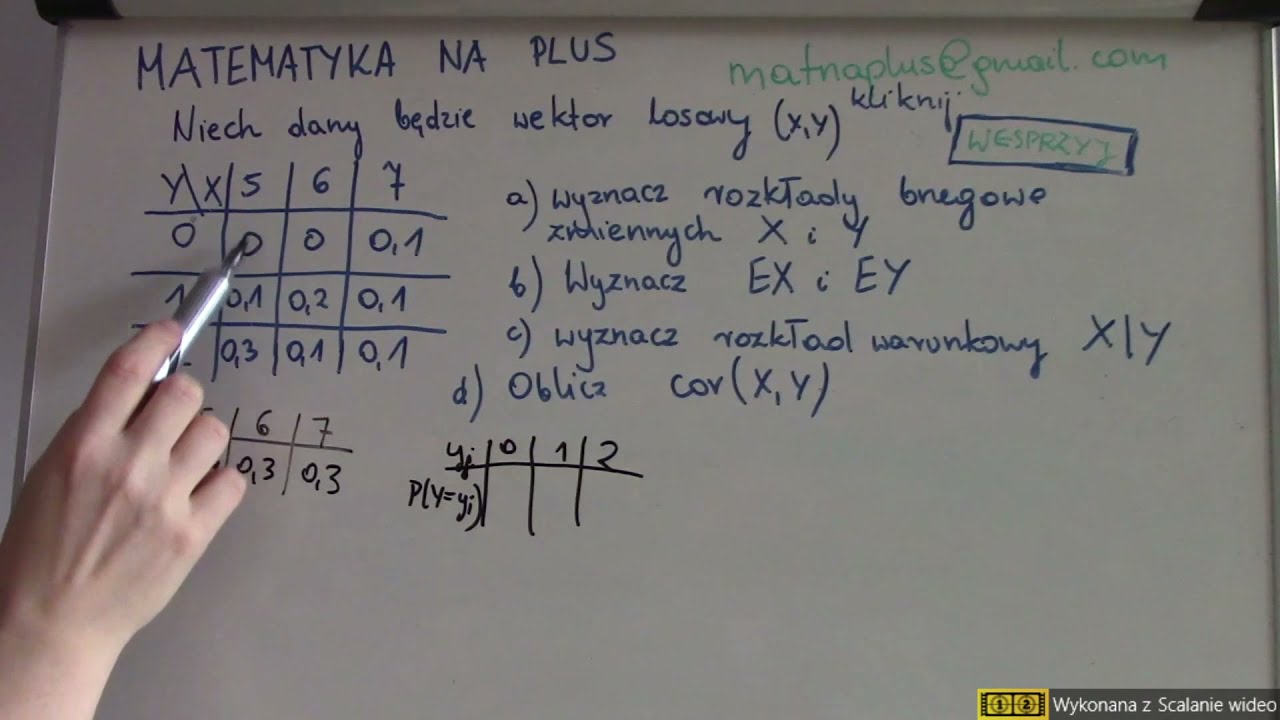 MATEMATYKA NA PLUS
matnaplus@gmail.com
Niech dany będzie wektor losowy (X,Y) kliknij
WESPRZYJ
Y\X 5 6 7
0 0 0 0,1
1 0,1 0,2 0,1
0,3 0,1 0,1
a) wyznacz rozkłady bregowe
zmiennych X i Y
b) Wyznacz EX i EY
c) wyznacz rozkład warunkowy X|Y
d) Oblicz cov(X,Y)
6 7
0,3 0,3
yj 0 1 2
P(Y=yj)
Wykonana z Scalanie wideo